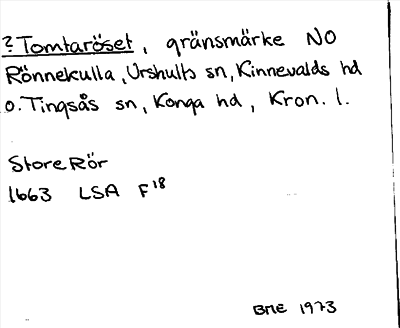 ? Tomtaröset, gränsmärke NO
Rönnekulla, Urshults sn, Kinnevalds hd
o. Tingsås sn, Konga hd, Kron. l.
Store Rör
1663 LSA F18
BME 1973